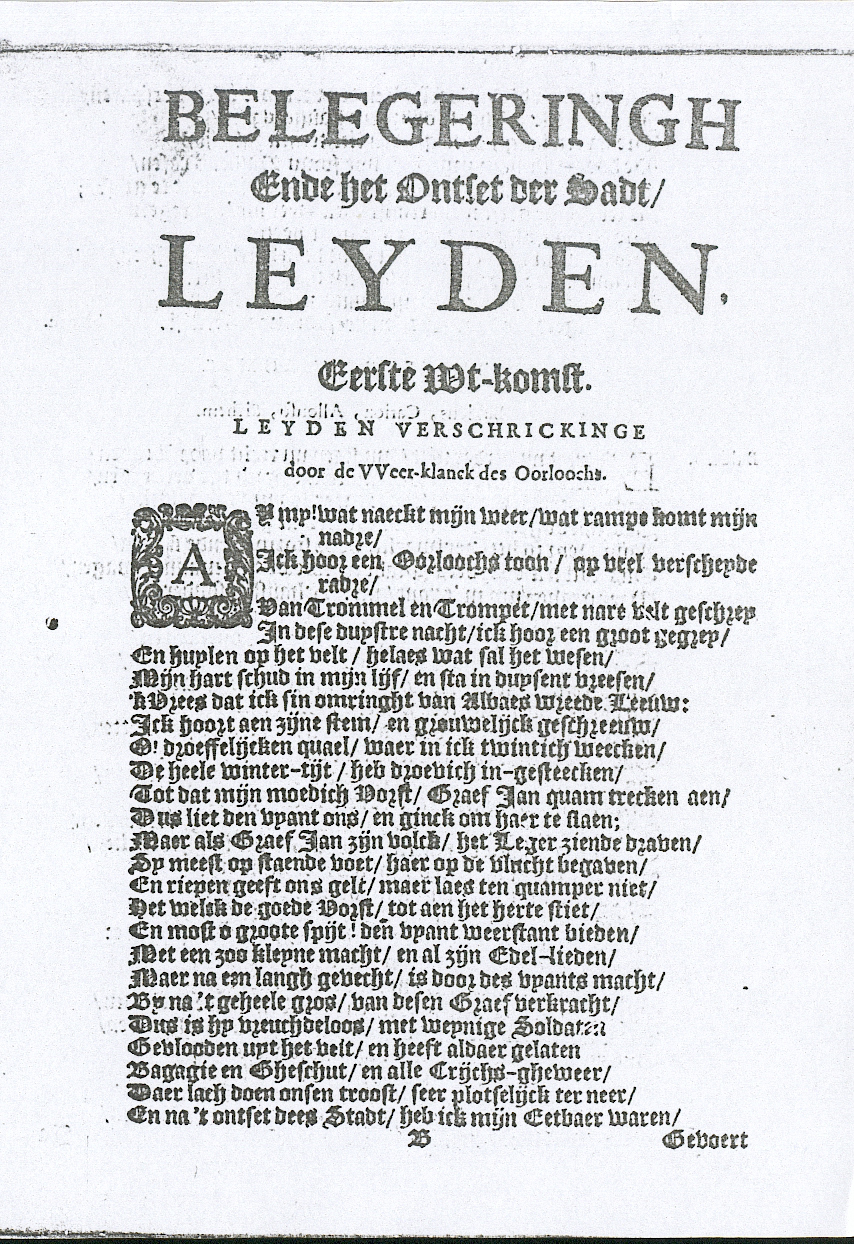 BELEGERINGH
Ende het Ontset der Sadt/
LEYDEN.
Eerste Wt-komst.
LEYDEN VERSCHRICKINGE
door de VVeer-klanck des Oorloochs.
AY my! wat naeckt mijn weer/wat ramps komt mijn
nadre/
Ick hoor een Oorloochs toon / op veel verscheyde
radre/
Van Trommel en Trompet/met nare velt geschrey
In dese duystre nacht/ick hoor een groot gegrey/
En huylen op het velt / helaes wat sal het wesen/
Mijn hart schud in mijn lijf/ en sta in duysent vreesen/
'k Vrees dat ick sin omringht van Alvaes wreede Leeuw:
Ick hoort aen zijne stem/ en grouwelijck geschreeuw/
O! droeffelijcken quael/ waer in ick twintich weecken/
De heele winter-tijt / heb droevich in-gesteecken/
Tot dat mijn moedich Vorst/ Graef Jan quam trecken aen/
Dus liet den vyant ons/ en ginck om haer te slaen;
Maer als Graef Jan zijn volck/ het Leger ziende draven/
Sy meest op staende voet/ haer op de vlucht begaven/
En riepen geeft ons gelt/ maer laes ten quamper niet/
Het welck de goede Vorst/ tot aen het herte stiet/
En most o groote spijt! den vyant weerstant bieden/
Met een zoo kleyne macht/ en al zijn Edel-lieden/
Maer na een langh gevecht/ is door des vyants macht/
By na 't geheele gros/ van desen Graef verkracht/
Dus is hy vreuchdeloos/ met weynige Soldaten
Gevlooden uyt het velt/ en heeft aldaer gelaten
Bagagie en Gheschut/ en alle Crijchs-gheweer/
Daer lach doen onsen troost/ seer plotselijck ter neer/
En na 't ontset dees Stadt/ heb ick mijn Eetbaer waren/
B
Gevoert